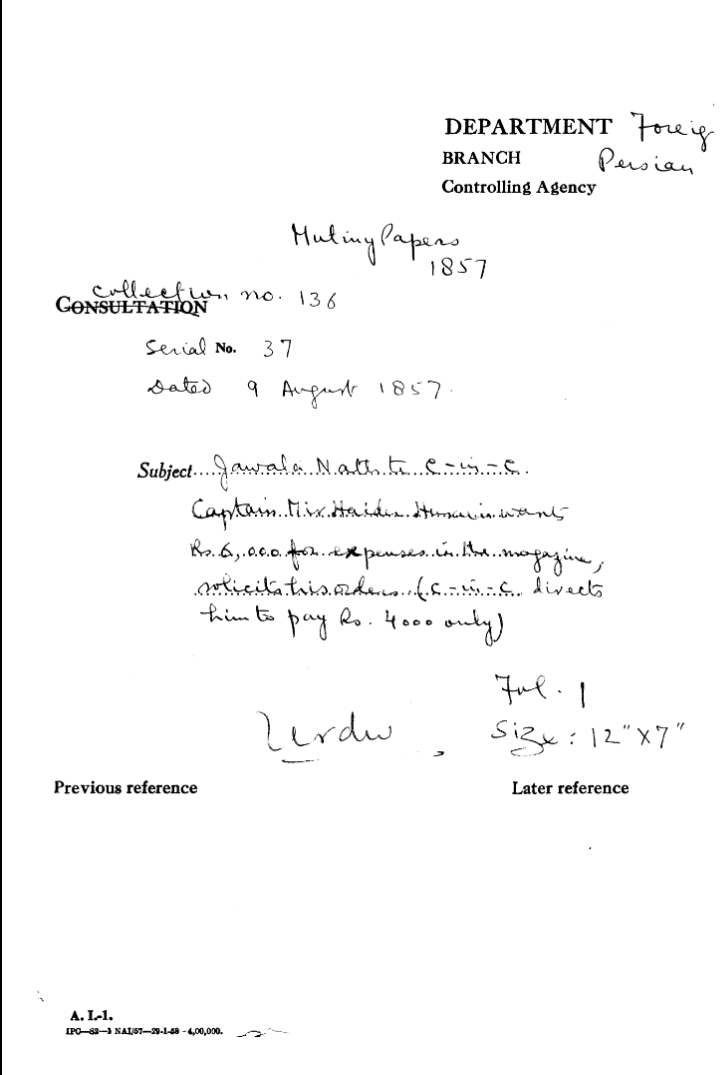 DEPARTMENT Foreig
BRANCH Persian
Controlling Agency
Mutiny Papers
1857
Collection no. 136
CONSULTATION
Serial No. 37
Dated 9 August 1857.
Subject....Jawala Nath to C-in-C.
Captain Mir Haider Husain wants
Rs. 6,000 for expenses in the magazine,
solicits his orders. (C.-in-C. directs
him to pay Rs. 4000 only)
Fol. 1
Urdu, Size: 12"X7"
Previous reference Later reference
A. I.-1.
IPC—S2—3 NAI/57—29-1-58 -4,00,000.